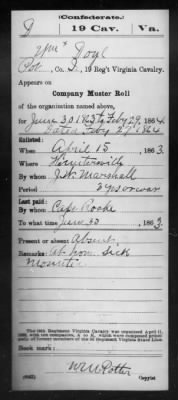 (Confederate.)
D 19 Cav. Va.
Wm
Pvt., Co. D, 19 Reg't Virginia Cavalry.
Appears on
Company Muster Roll
of the organization named above,
for June 30 1863 to Feby 29, 1864
Dated Feby 29 1864
Enlisted:
When April 15, 1863
Where
By whom J.W. Marshall
Period 3 yrs or war
Last paid:
By whom Capt
To what time June 30, 1863
Present or absent Absent
Remarks: at home sick
The 19th Regiment Virginia Cavalry was organized April 11, 1863, with ten companies, A to K, which were composed principally of former members of the 3d Regiment Virginia State Line.
Book mark:
(642) Copyist.